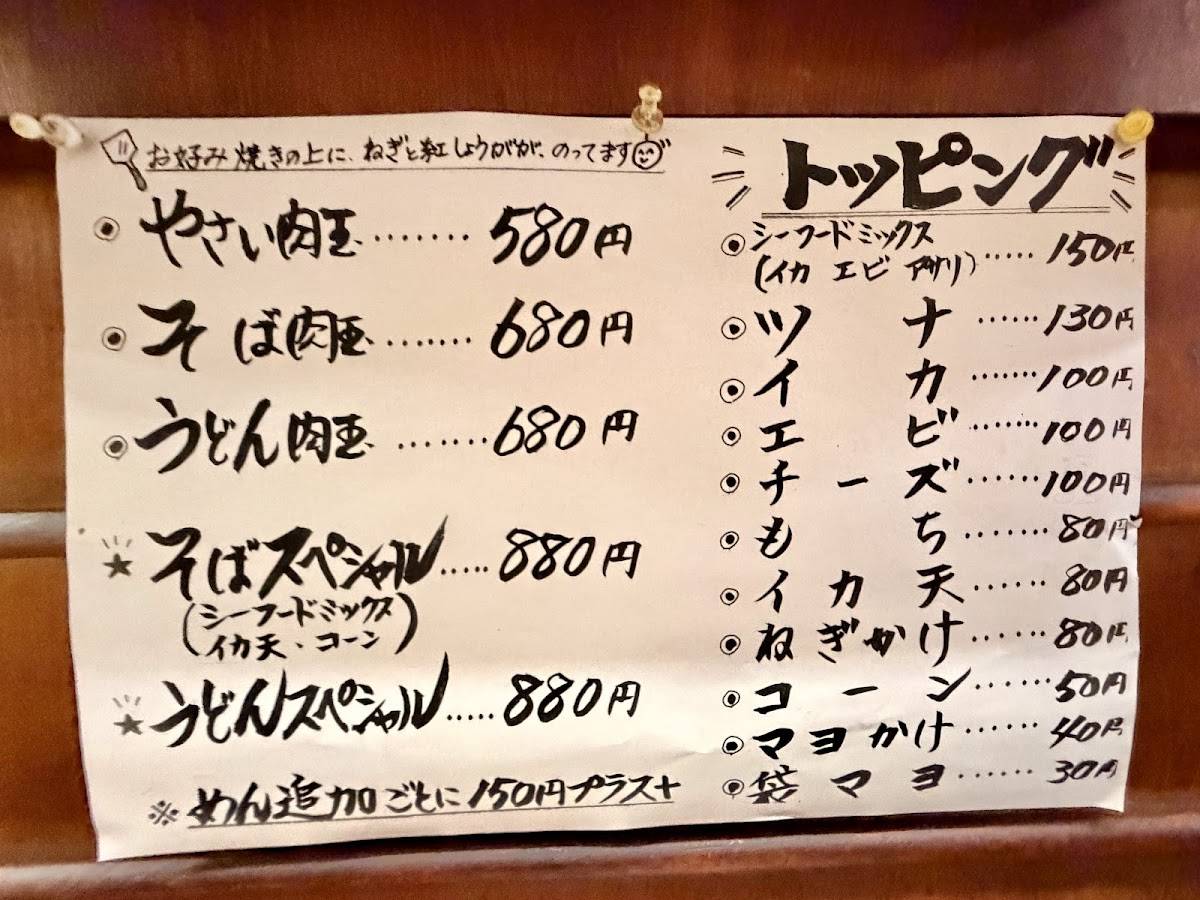 お好み焼きの上に、ねぎと紅しょうがが、のってます
◉ やさい肉玉.......580円
◉ そば肉玉.......680円
◉ うどん肉玉.......680円
★ そばスペシャル.....880円
(シーフードミックス
イカ天・コーン)
★ うどんスペシャル.....880円
※ めん追加ごとに150円プラス+
トッピング
◉ シーフードミックス
(イカ エビ アサリ).....150円
◉ ツナ......130円
◉ イカ.......100円
◉ エビ.......100円
◉ チーズ.......100円
◉ もち.......80円
◉ イカ天.......80円
◉ ねぎかけ.......80円
◉ コーン.......50円
◉ マヨかけ.......40円
◉ 袋マヨ.......30円